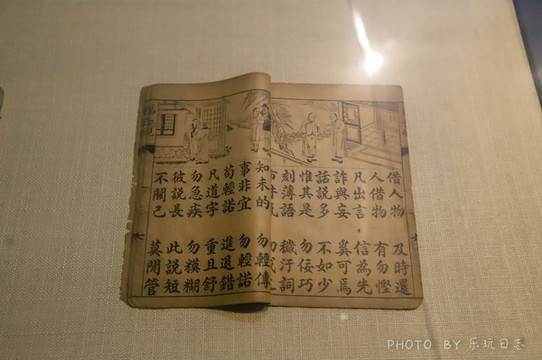 借人物 及時還
人借物 有勿慳
凡出言 信為先
詐與妄 奚可焉
話說多 不如少
惟其是 勿佞巧
刻薄語 穢汙詞
知未的 勿輕傳
事非宜 勿輕諾
苟輕諾 進退錯
凡道字 重且舒
勿急疾 勿糢糊
彼說長 此說短
不關己 莫閒管
PHOTO BY 乐玩日志